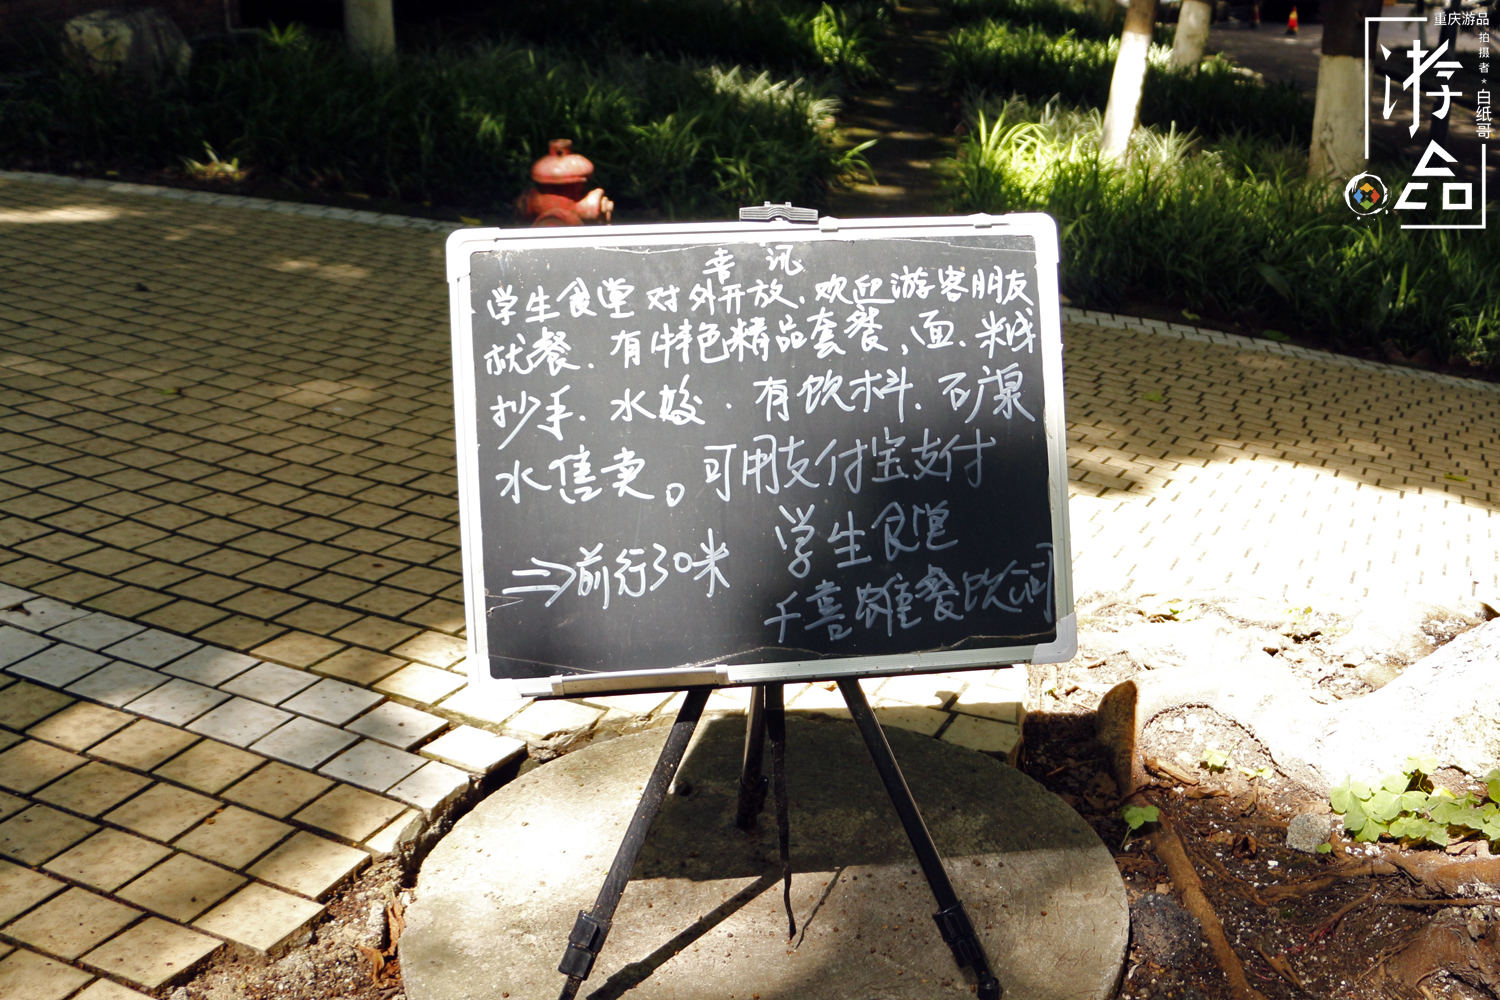 喜讯
学生食堂对外开放.欢迎游客朋友
就餐.有特色精品套餐,面.米线
抄手.水饺.有饮料.矿泉
水售卖。可用支付宝支付
⇒前行30米 学生食堂
千喜雄餐饮公司
重庆游品
游品
拍摄者·白纸哥